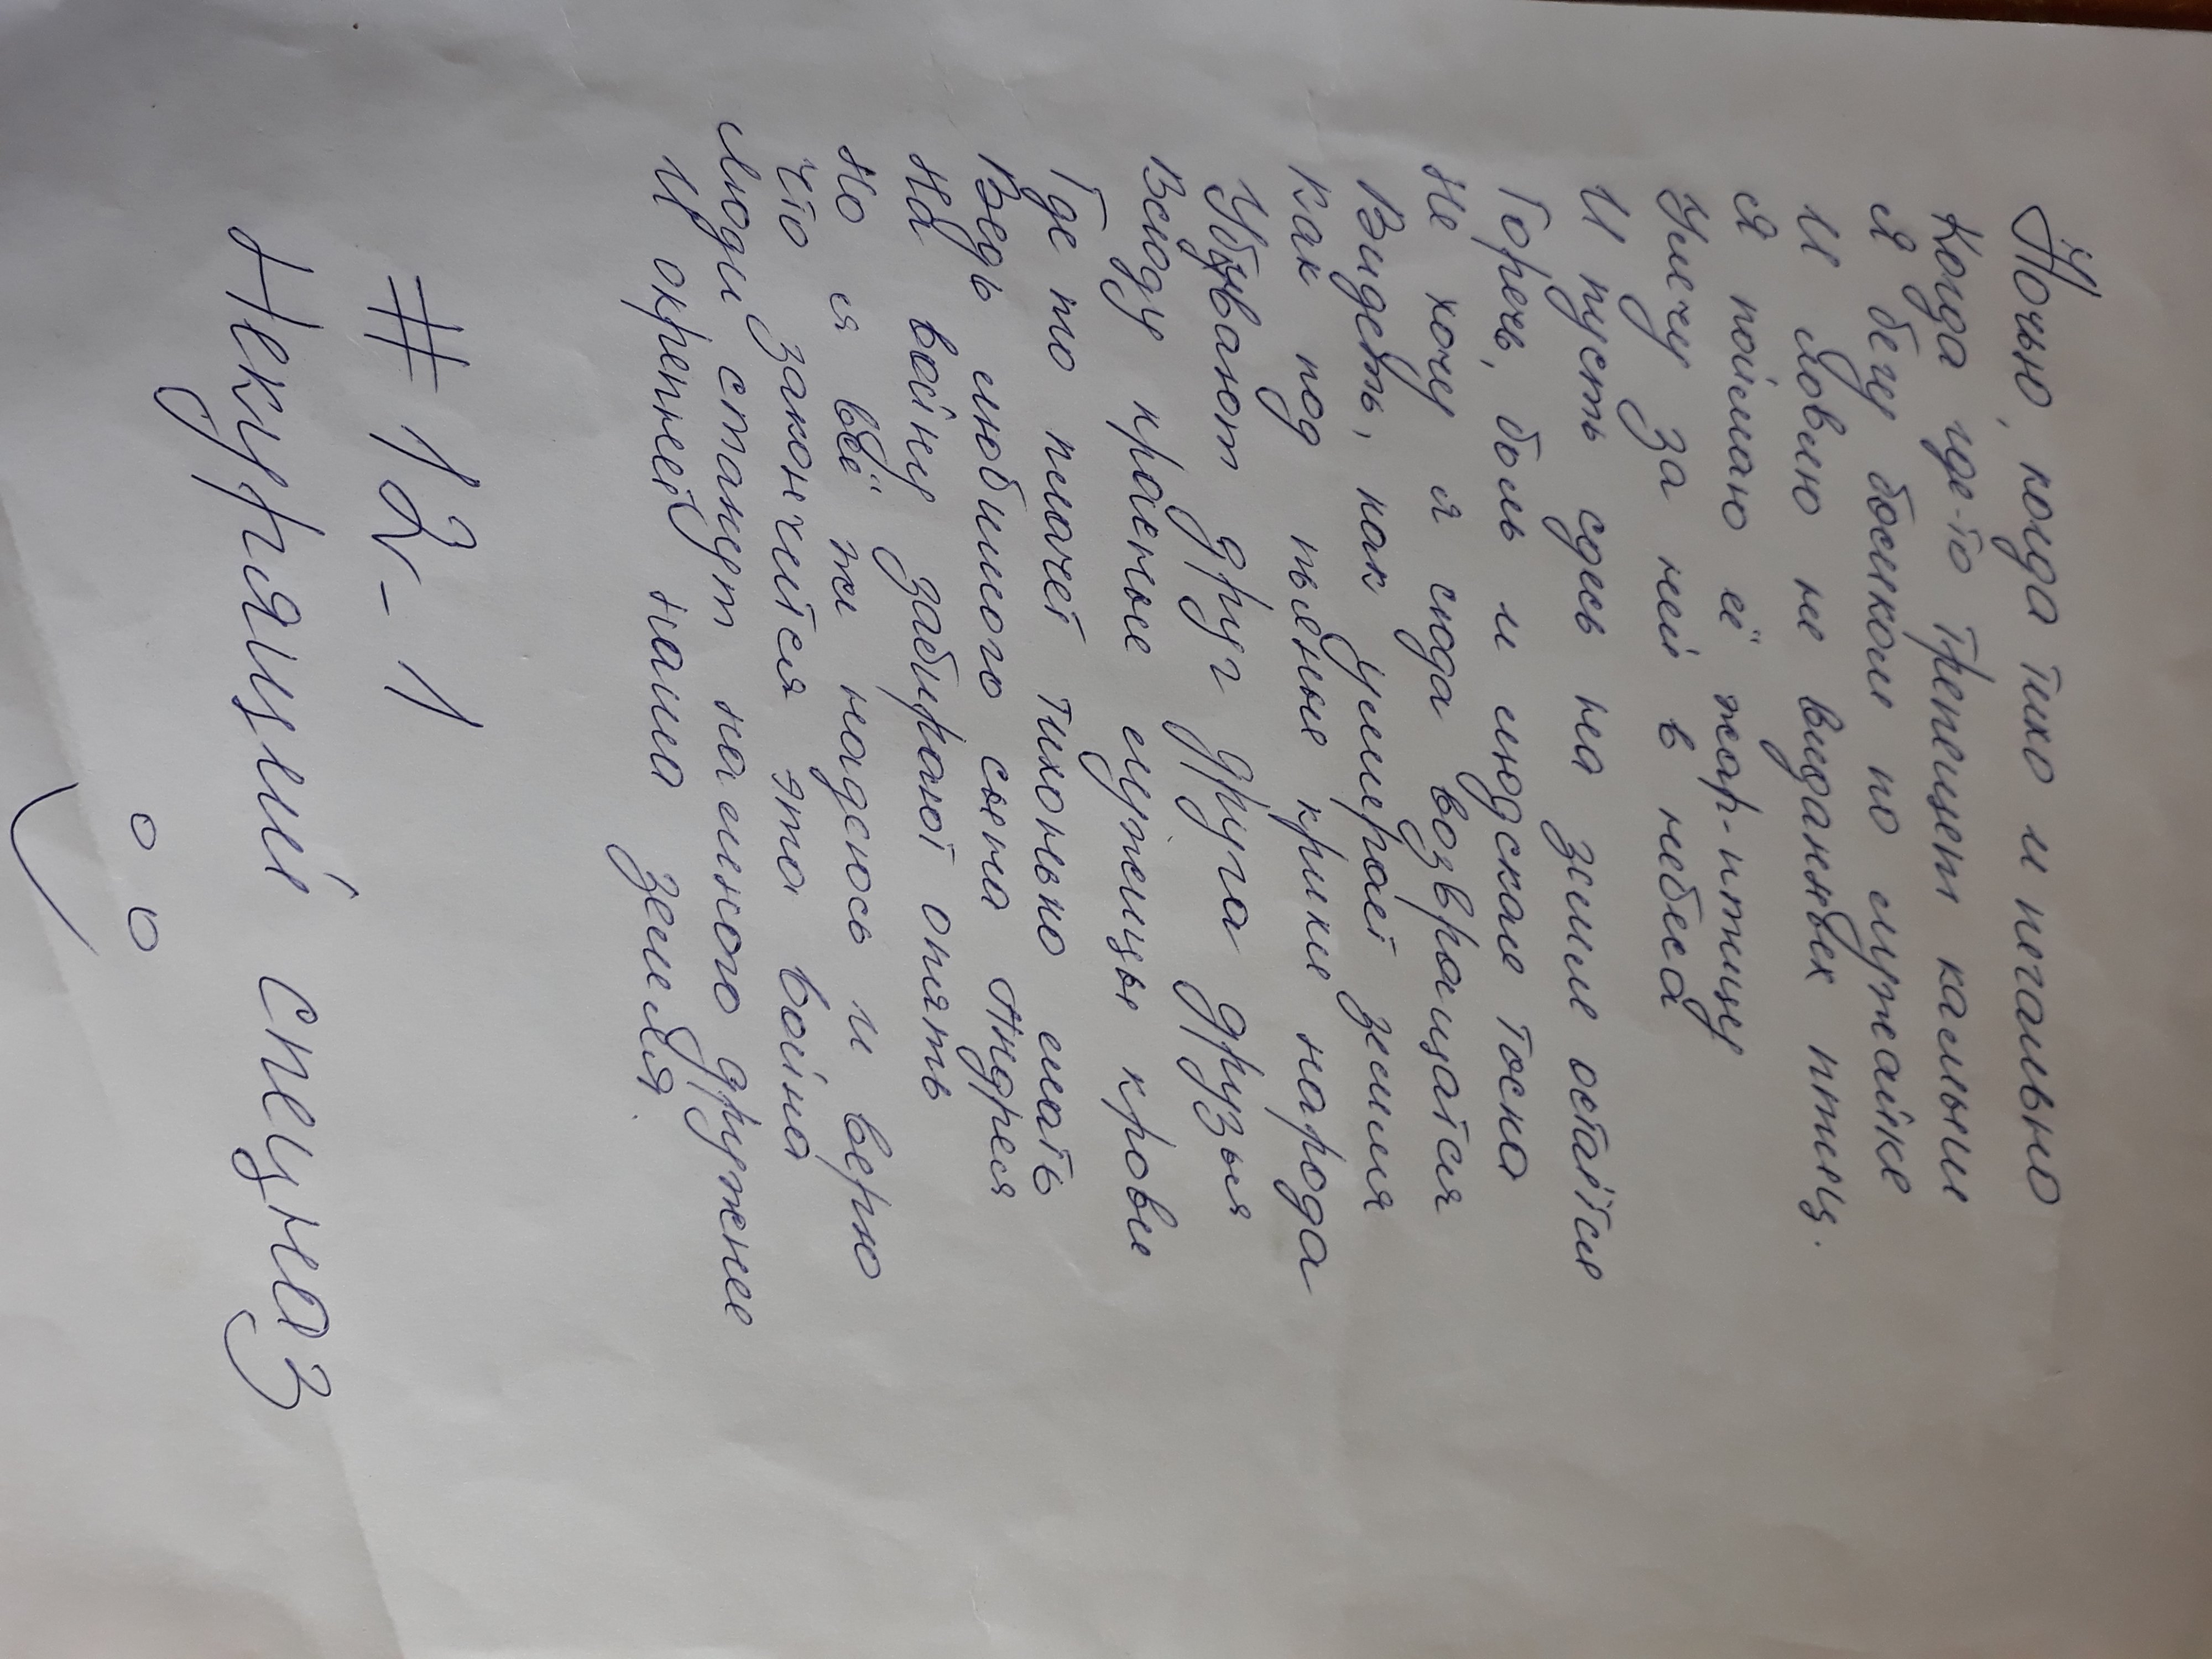 Ночью, когда тихо и печально
Когда где-то трепещет камыши
Я бегу босиком по лужайке
И ловлю не виданных птиц.
Я поймаю её жар-птицу
Улечу за ней в небеса
И пусть сдесь на земле остаётся
Горечь, боль и людская тоска
Не хочу я сюда возвращатся
Видеть, как умирает земля
Как под пьяные крики народа
Убивают друг друга друзья
Всюду красные лужицы крови
Где то плачет тихонько мать
Ведь любимого сына Андрея
На войну забирают опять
Но я всё же надеюсь и верю
Что закончится эта война
Люди станет на много дружнее
И окрепнет наша земля.
# 12-1
Некурящий спецназ